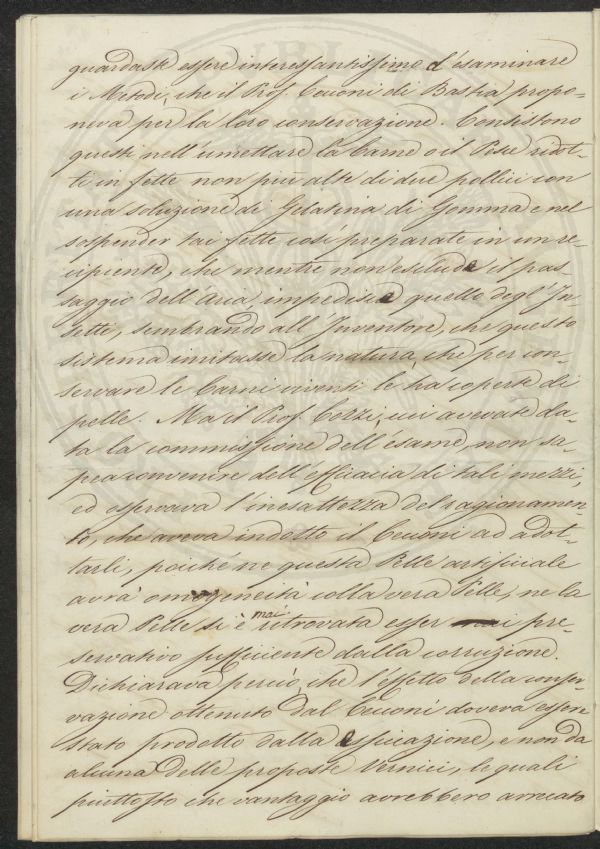 guardaste essere interessantissimo d'esaminare
i Metodi, che il Prof. Cecconi di Bastia propo-
neva per la loro conservazione. Consistono
questi nell'umettare la Carne o il Pesce ridot-
ti in fette non più alte di due pollici con
una soluzione di Gelatina di Gomma e nel
sospender tai fette così preparate in un re-
cipiente, che mentre non esclude il pas-
saggio dell'Aria, impedisce quello degl'In-
setti, sembrando all'Inventore, che questo
sistema imitasse la natura, che per con-
servare le Carni viventi le ha coperte di
pelle. Ma il Prof. Cozzi, cui avevate da-
ta la commissione dell'esame non sa-
pea convenire dell'efficiacia di tali mezzi,
ed osservava l'inesattezza del ragionamen-
to, che aveva indotto il Cecconi ad adot-
tarli, poiché ne questa Pelle artificiale
avrà omogeneità colla vera Pelle, ne la
vera Pelle si è mai ritrovata esser pre-
servativo sufficiente dalla corruzione.
Dichiarava perciò, che l'effetto della conser-
vazione ottenuto dal Cecconi doveva essere
stato prodotto dalla essicazione, e non da
alcuna delle proposte Vernici, le quali
piuttosto che vantaggio avrebbero arrecato